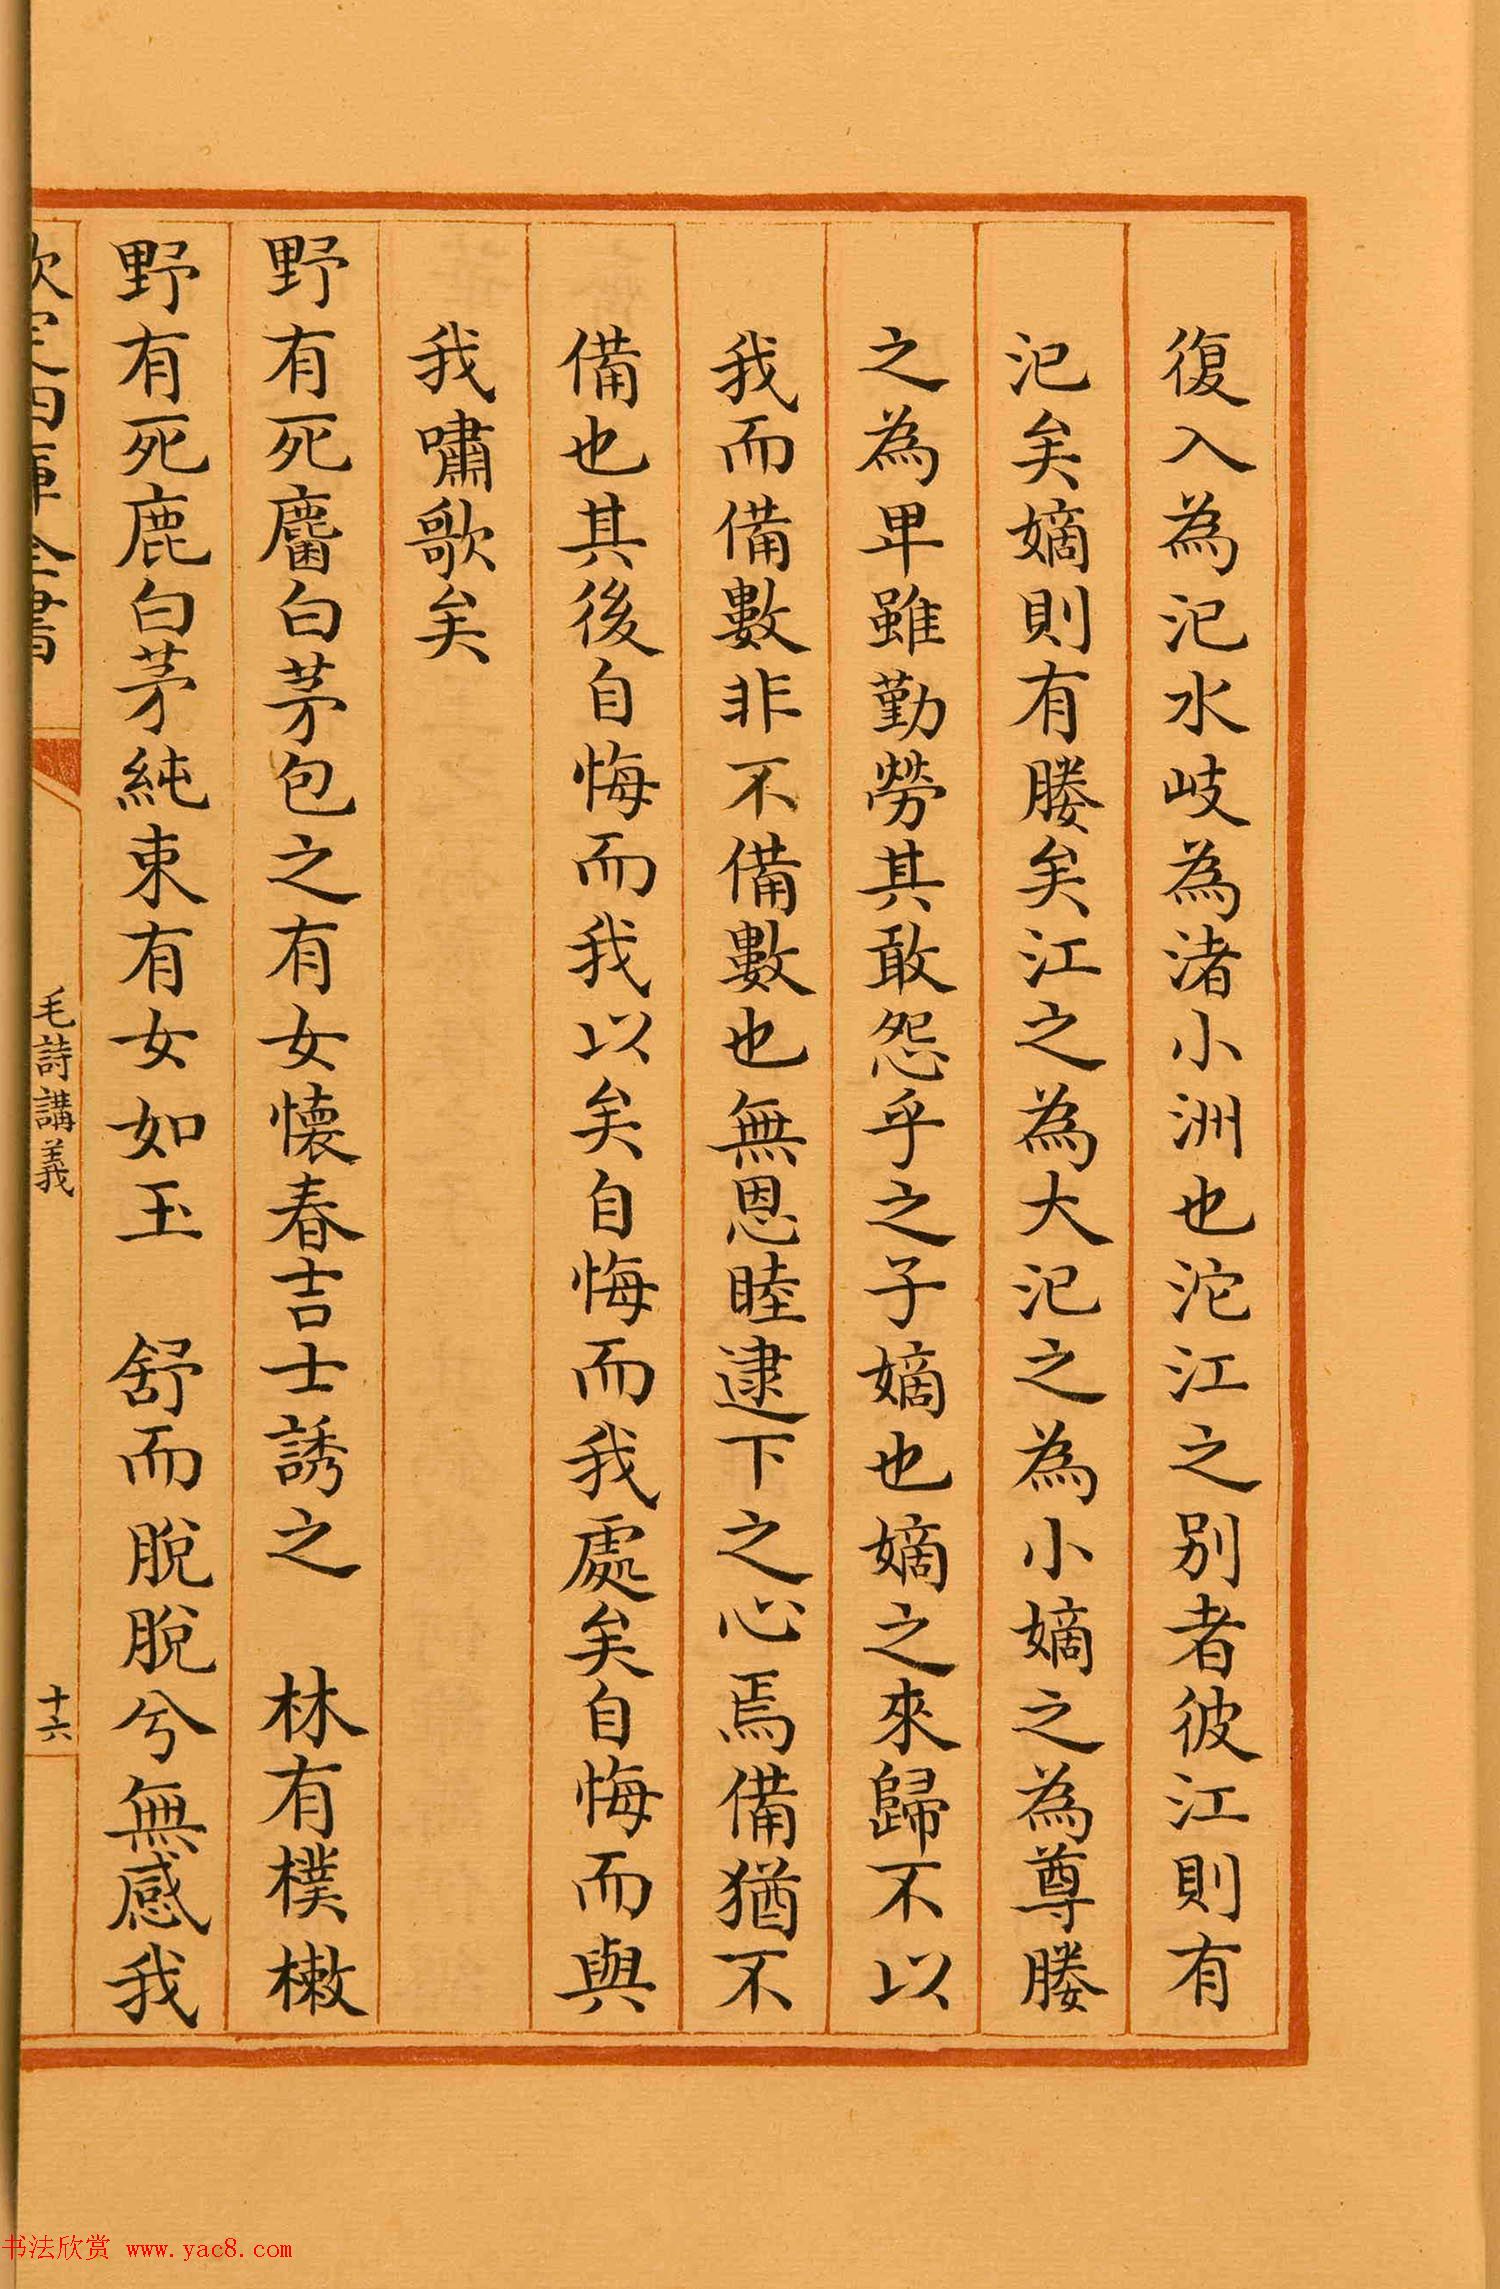 復入為汜水岐為渚小洲也沱江之別者彼江則有
汜矣嫡則有媵矣江之為大汜之為小嫡之為尊媵
之為卑雖勤勞其敢怨乎之子嫡也嫡之來歸不以
我而備數非不備數也無恩睦逮下之心焉備猶不
備也其後自悔而我以矣自悔而我處矣自悔而與
我嘯歌矣
野有死麕白茅包之有女懷春吉士誘之　林有樸樕
野有死鹿白茅純束有女如玉　舒而脫脫兮無感我
欽定四庫全書
毛詩講義
十六
书法欣赏 www.yac8.com